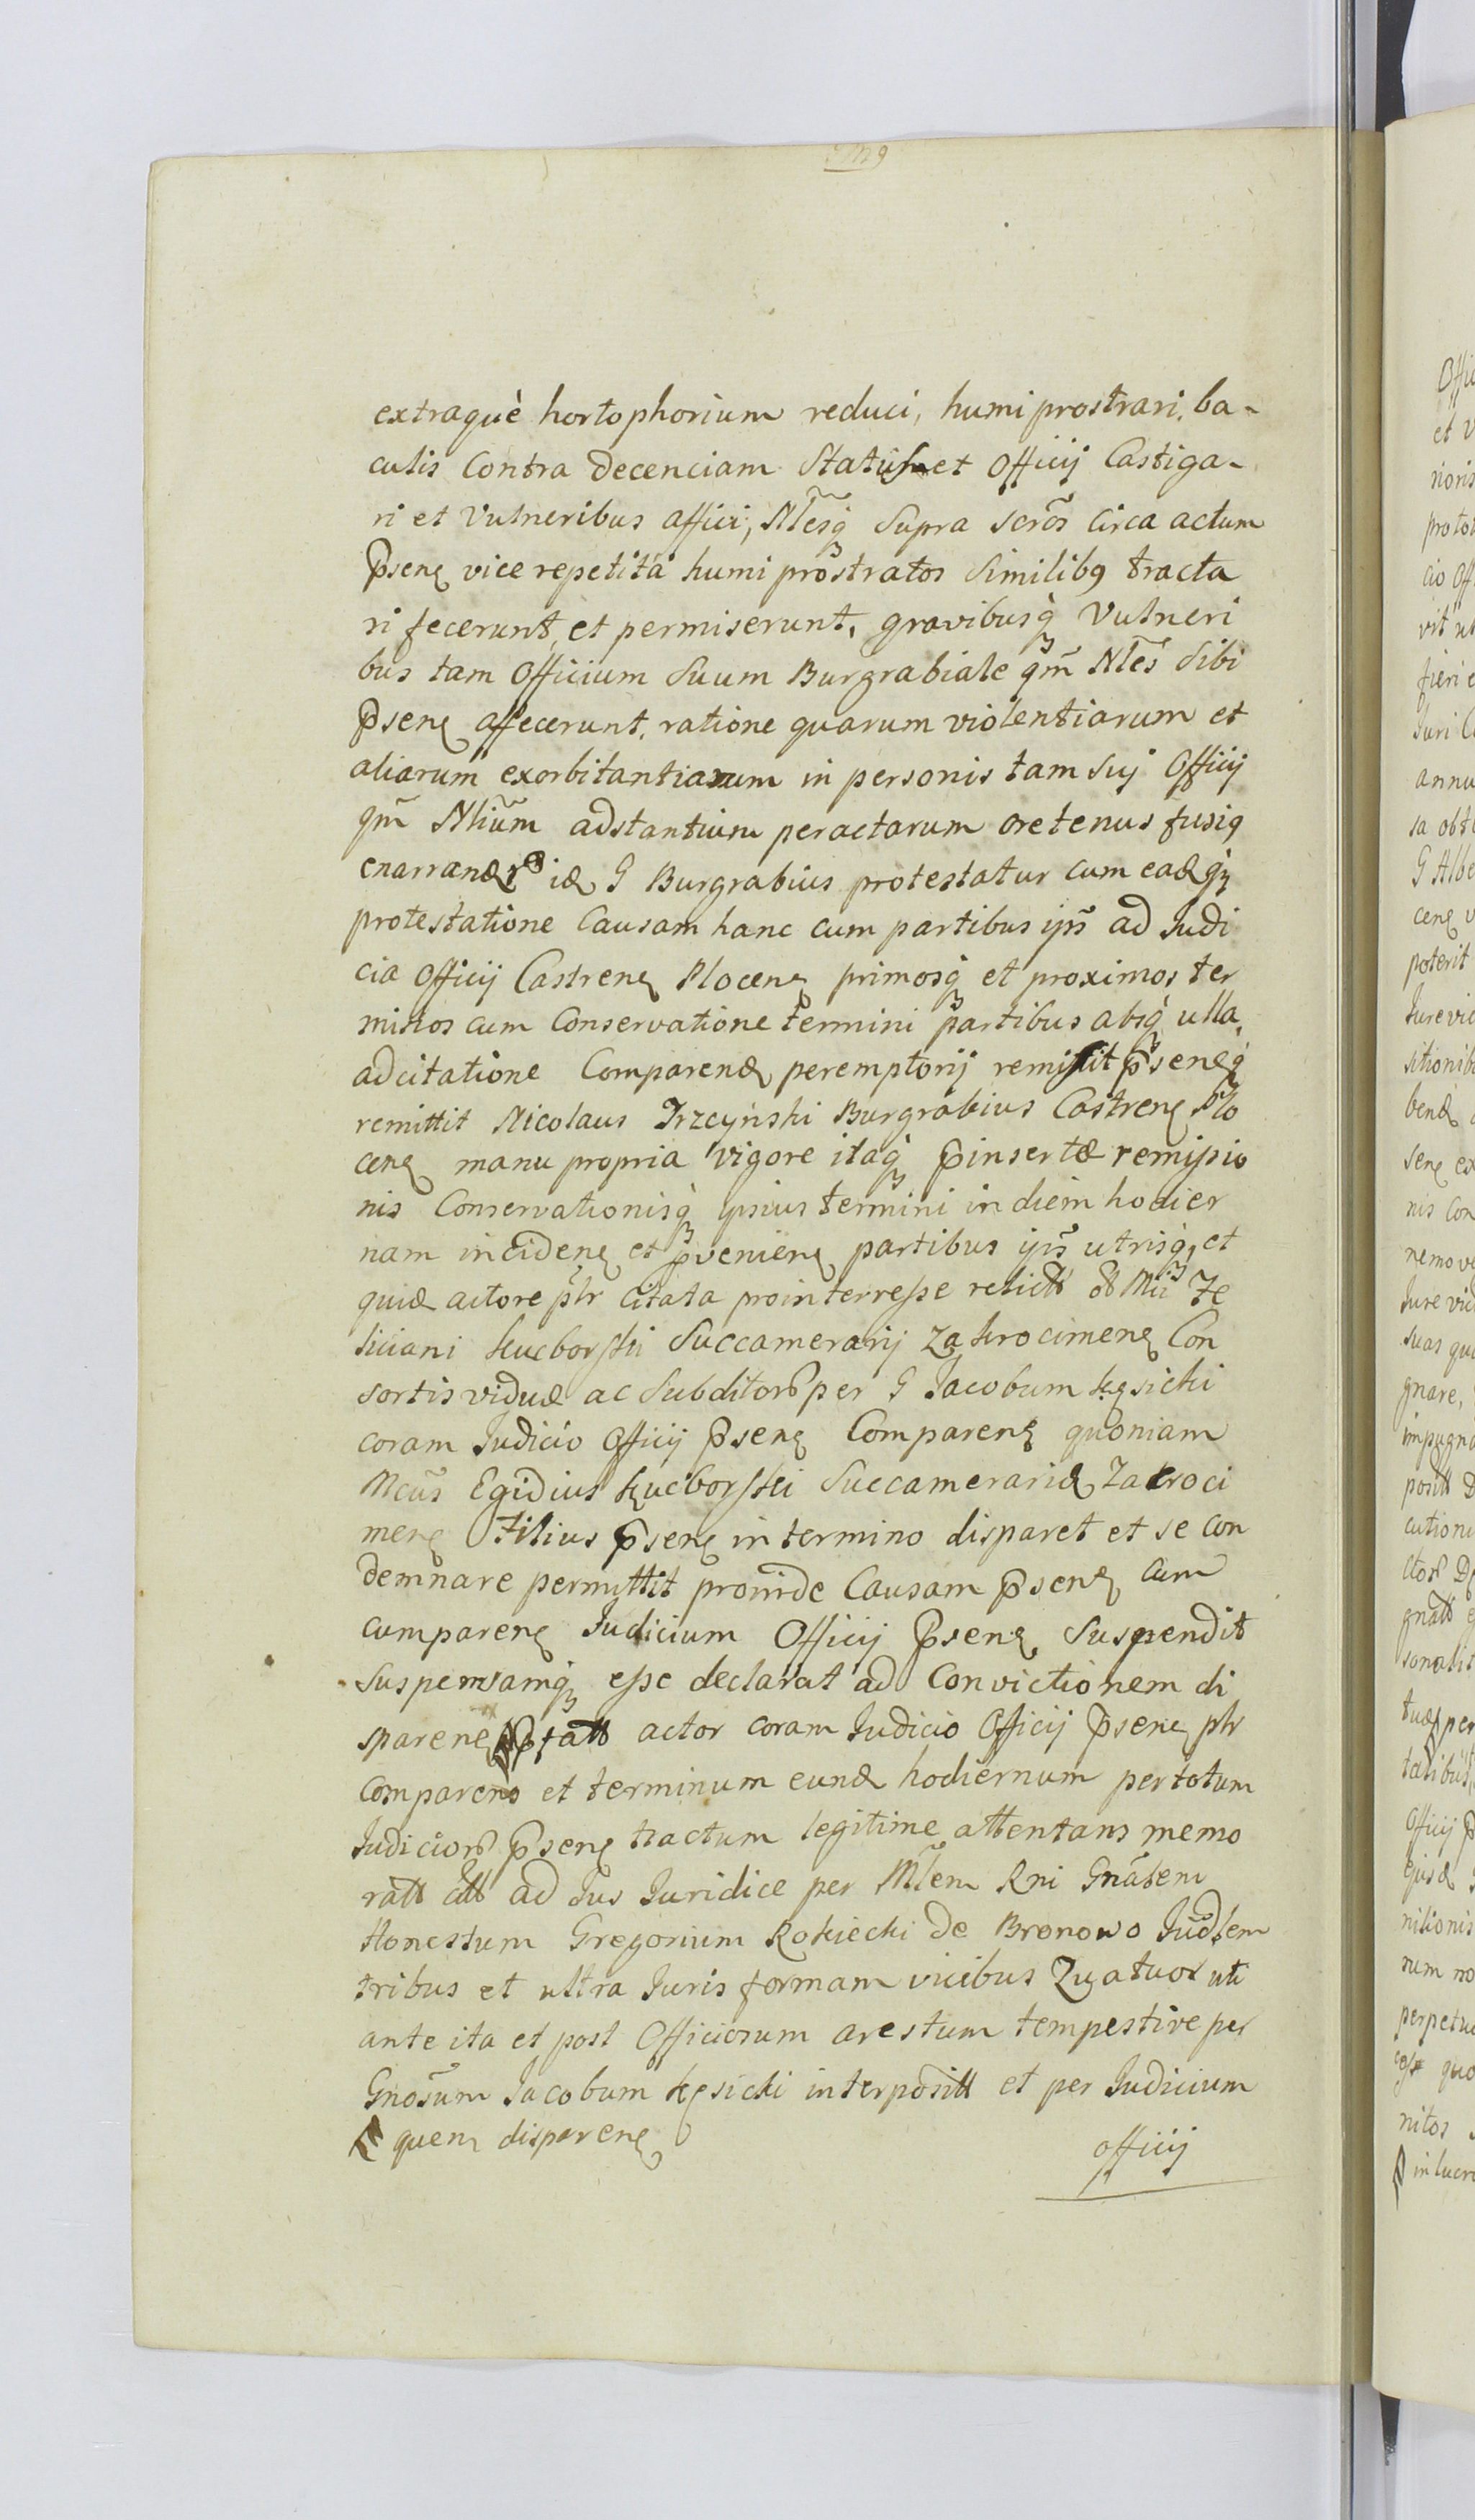 extraquè hortophorium reduci, humi prostrari, ba-
culis Contra Decenciam Status et Officij Castiga-
ri et Vulneribus affici, Nl̃esq̀ȝ Supra scrõs Circa actum
p̃senꝭ vice repetitâ humi prostratos Similibꝰ tracta
ri fecerunt, et permiserunt, gravibusq̀ȝ Vulneri
bus tam Officium Suum Burgrabiale qm̃ Nlẽs Sibi
p̃senꝭ affecerunt, ratione quarum violentiarum et
aliarum exorbitantiarum in personis tam Suj Officij
qm̃ Nliũm adstantium peractarum oretenus fusiꝰ
enarrandꝭ idꝭ G Burgrabius protestatur cum eadꝭqȝ
protestatione Causam hanc cum partibus ip̃s ad Judi
cia Officij Castrenꝭ Plocenꝭ primosq̀ȝ et proximos ter
minos cum Conservatione termini partibus absq̀ȝ ulla
adcitatione Comparendꝭ peremptorij remisit p̃senꝭq̀ȝ
remittit Nicolaus Trzcyński Burgrabius Castrenꝭ Plo
cenꝭ manu propria vigore itaq̀ȝ p̃insertæ remissio
nis Conservationisq̀ȝ ipsius termini in diem hodier
nam incidenꝭ et p̃venienꝭ partibus ip̃s utrisq̀ȝ, et
quidꝭ actore p̃lr Citata pro interresse relictt olt Mci Fe
liciani Kucborski Succamerarij Zakrocimenꝭ Con
sortis viduæ ac Subditorꝭ per G Jacobum Kęsicki
coram Judicio Officij p̃senꝭ Comparenꝭ quoniam
Mcũs Egidius Kucborski Succameraridꝭ Zakroci
menꝭ Filius p̃senꝭ in termino disparet et se con
demnare permittit proinde Causam p̃senꝭ cum
cumparenꝭ Judicium Officij p̃senꝭ Suspendit
Suspensamq̀ȝ esse declarat ad Convictionem di
sparenꝭ p̃fatt actor coram Judicio Officij p̃senꝭ plr
Comparens et terminum eundꝭ hodiernum per totum
Judiciorꝭ p̃senꝭ tractum legitime attentans memo
ratt citt ad Jus Juridice per Mlem Rni Gnãlem
Honestum Gregorium Rokiecki de Bronowo Juđlem
tribus et ultra Juris formam vicibus Quatuor uti
ante ita et post Officiosum arestum tempestive per
Gnõsum Jacobum Kęsicki interpositt et per Judicium
quem disparenꝭ
officij